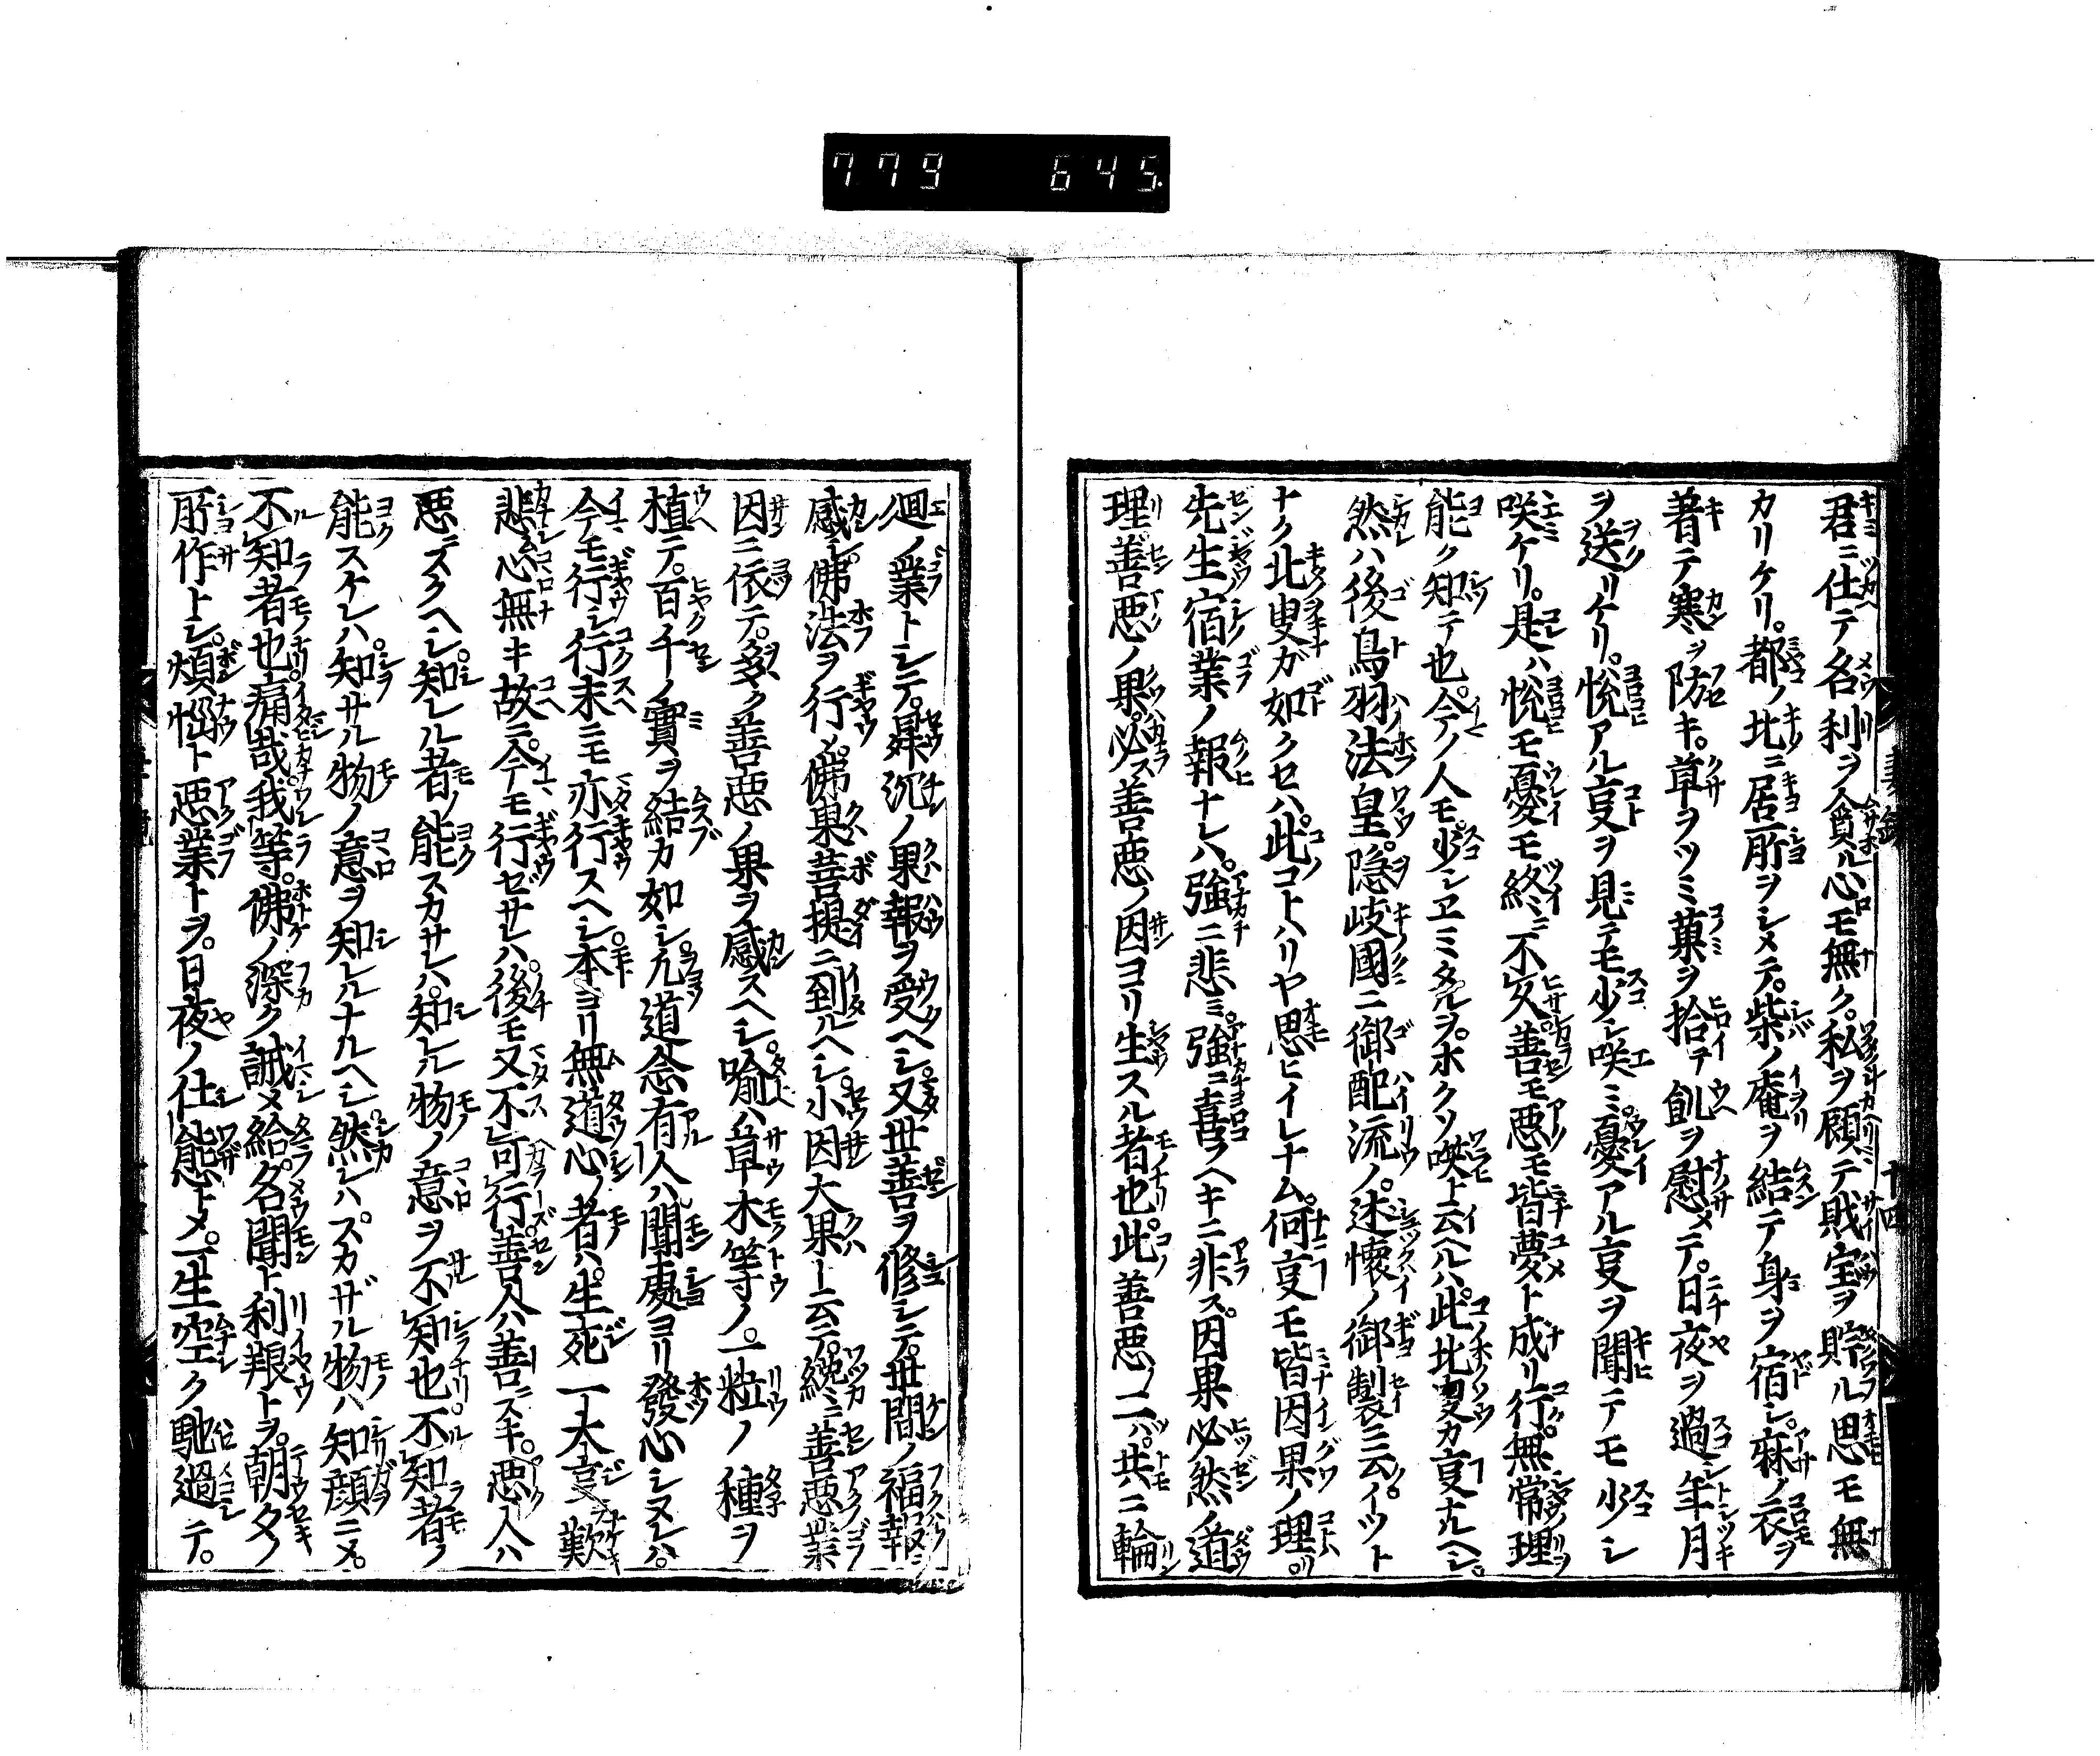 779 645
君ニ仕テ名利ヲ貪ル心モ無ク。私ヲ顧テ財宝ヲ貯ル思モ無
カリケリ。都ノ北ニ居所ヲシメテ。柴ノ庵ヲ結テ身ヲ宿シ。麻ノ衣ヲ
著テ寒ヲ防キ。草ヲツミ菓ヲ拾テ飢ヲ慰メテ。日夜ヲ過シ年月
ヲ送リケリ。悦アル叓ヲ見テモ少シ咲ミ。憂アル叓ヲ聞テモ少シ
咲ケリ。是ハ悦モ憂モ終ニ不久善モ悪モ皆夢ト成リ行。無常理ヲ
能ク知テ也。今ノ人モ。少シヱミタルヲ。ホクソ咲ト云ヘルハ。此北叟カ叓ナルヘシ。
然ハ後鳥羽法皇。隠岐國ニ御配流ノ。述懐ノ御製ニ云ク。イツト
ナク北叟ガ如クセハ。此コトハリヤ思ヒイレナム。何叓モ皆因果ノ理リ。
先生宿業ノ報ナレハ。強ニ悲ミ。強ニ喜フヘキニ非ス。因果必然ノ道
理善悪ノ果。必ス善悪ノ因ヨリ生スル者也。此善悪ノ二ハ。共ニ輪
十四
廻ノ業トシテ。昇沉ノ果報ヲ受ヘシ。又世善ヲ修シテ。世間ノ福報ヲ
感シ。佛法ヲ行ノ。佛果菩提ニ到ルヘシ。小因大果ト云テ。纔ニ善悪業
因ニ依テ。多ク善悪ノ果ヲ感スヘシ。喩ハ草木等ノ。一粒ノ種ヲ
植テ。百千ノ實ヲ結カ如シ。凢道念有人ハ。聞處ヨリ發心シヌレハ。
今モ行シ行末ニモ亦行スヘシ。本ヨリ無道心ノ者ハ。生死一大叓ヲ歎
悲ム心無キ故ニ。今モ行ゼサレハ。後モ又不可行。善人ハ善ニスキ。悪人ハ
悪ニズクヘシ。知レル者ノ能スカサレハ。知レル物ノ意ヲ不知也。不知者ノ
能スケレハ。知サル物ノ意ヲ知レルナルヘシ。然レハ。スカザル物ハ知顔ニメ。
不知者也。痛哉。我等。佛ノ深ク誡メ給フ。名聞ト利粮トヲ。朝夕ノ
所作トシ。煩悩ト悪業トヲ。日夜ノ仕態トメ。一生空ク馳過テ。